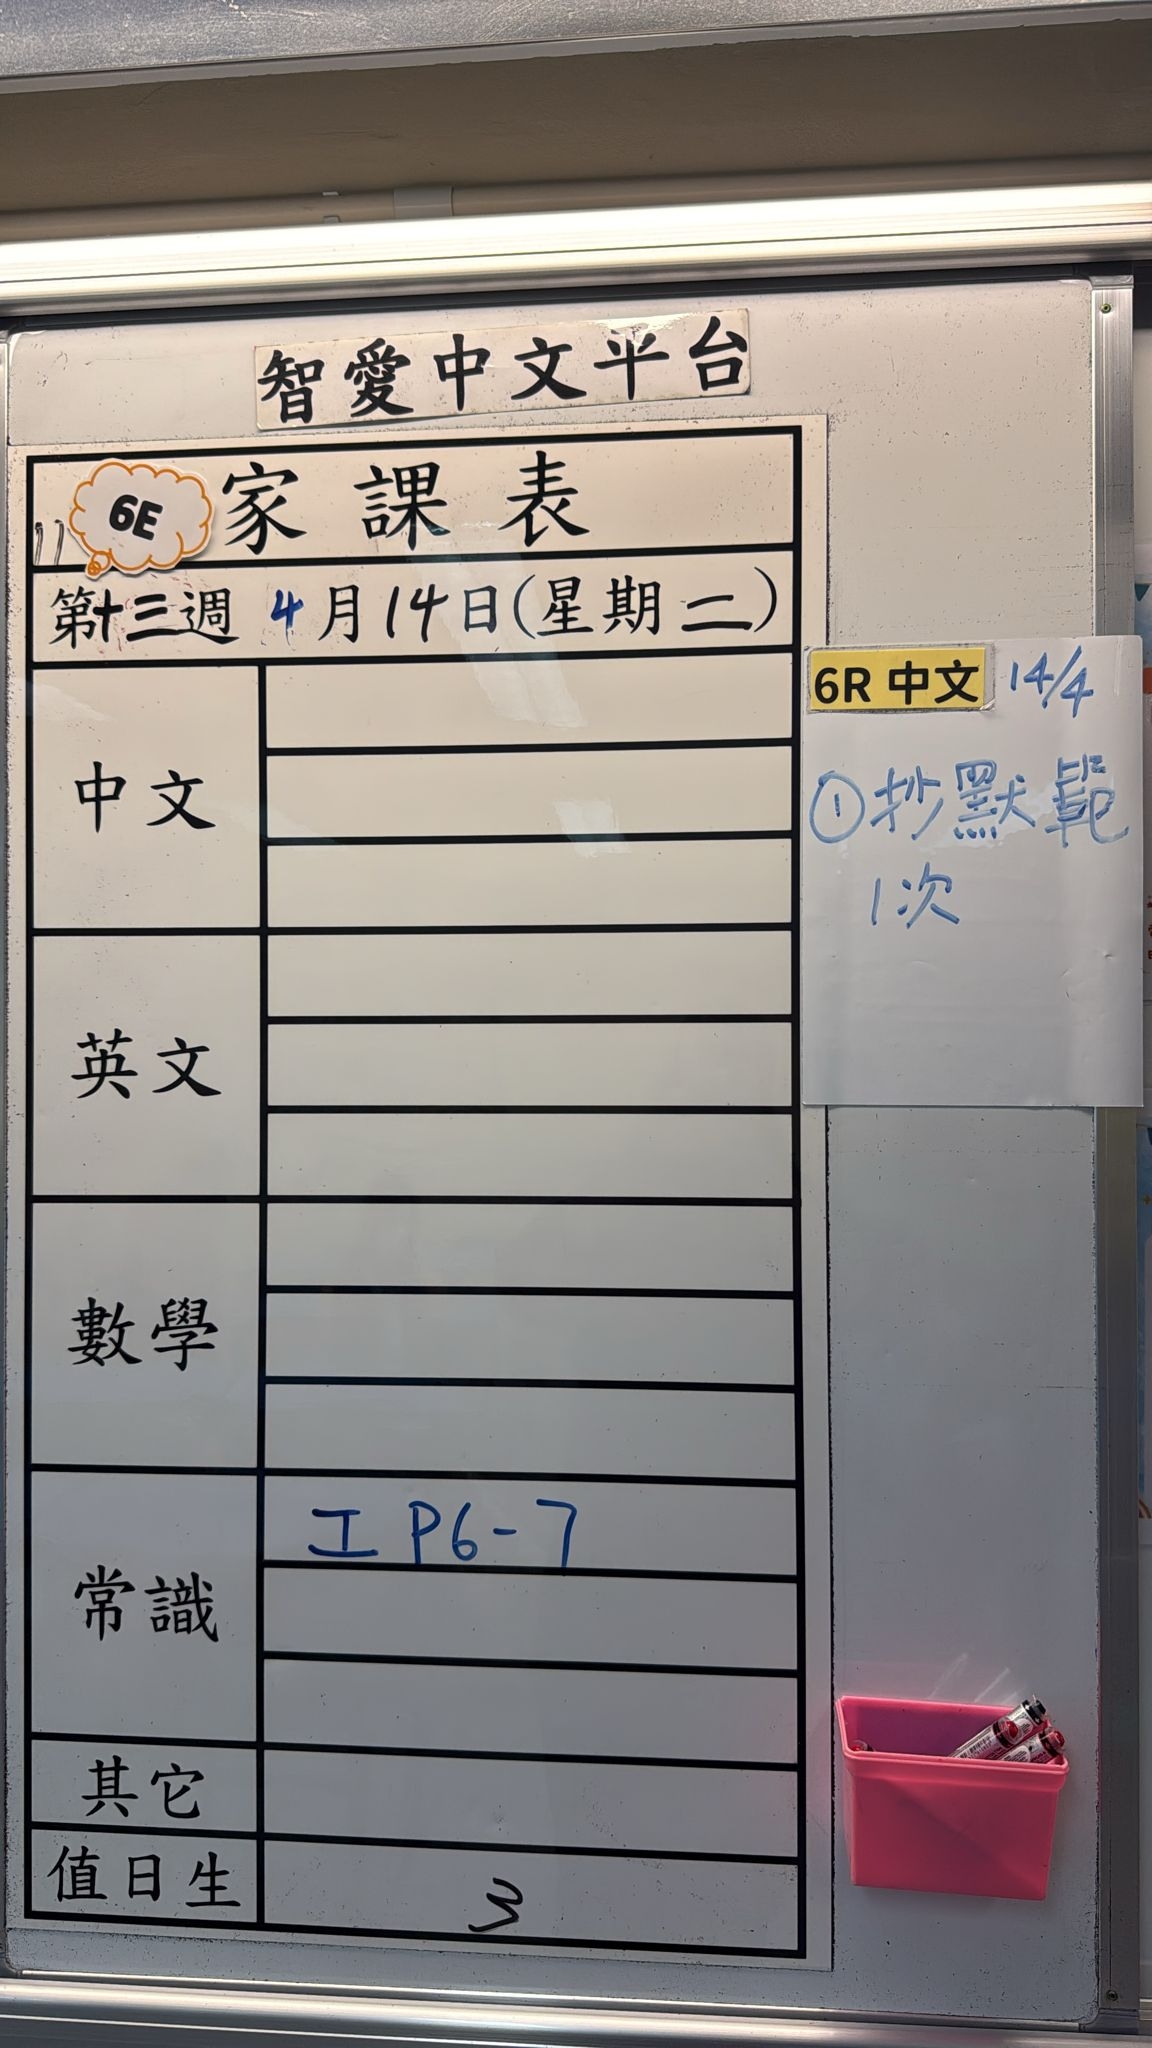 智愛中文平台
6E 家課表
第十三週 4月14日(星期二)
中文
英文
數學
常識
工 P6-7
其它
值日生
3
6R 中文 14/4
①抄默範
1次